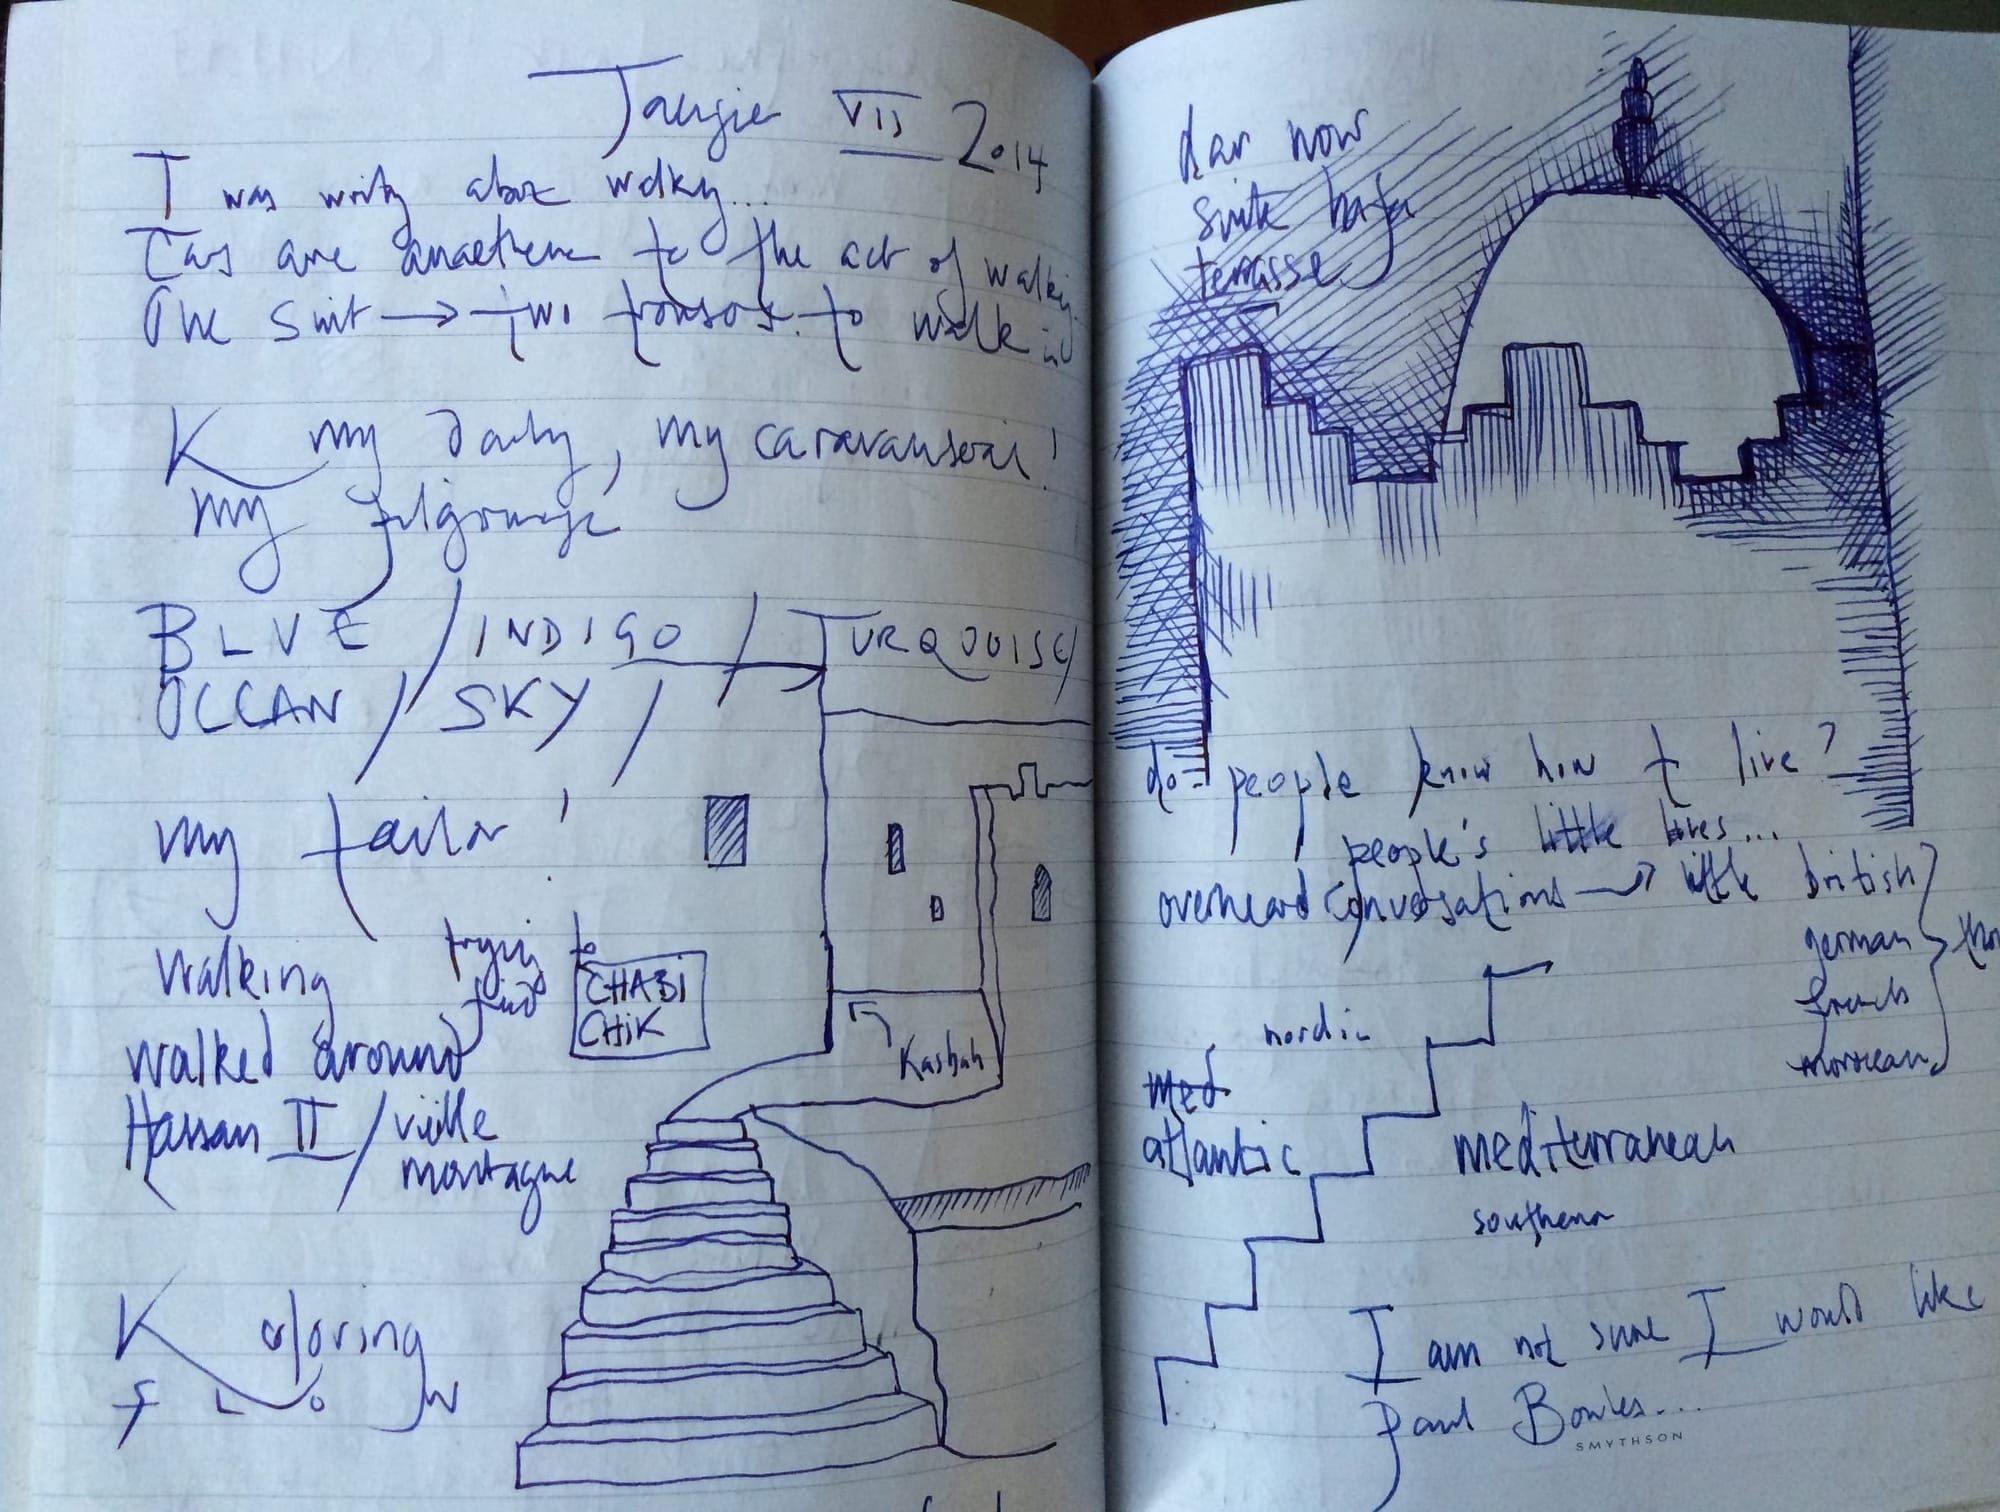 Tangie VII 2014
I was writing about walking...
Cars are anaethema to the act of walking.
The suit → two trousers to walk in
K my daily, my caravanserai!
my pilgrimage
BLUE / INDIGO / TURQUOISE /
OCEAN / SKY /
my tailor!
walking trying to
find
CHABI
CHIK
walked around
Hassan II / vieille
montagne
Kasbah
K oloring
F L o w
dar nour
suite hafa
terrasse
do people know how to live?
people's little lives...
overheard conversations → little british
german
french
moroccan
nordic
med
atlantic
mediterranean
southern
I am not sure I would like
Paul Bowles...
SMYTHSON